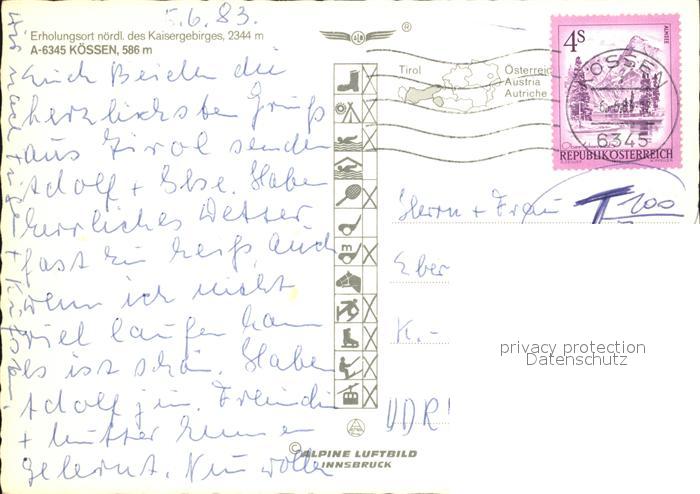 5.6.83.
Erholungsort nördl. des Kaisergebirges, 2344 m
A-6345 KÖSSEN, 586 m
Euch Beiden die
herzlichsten Grüße
aus Tirol senden
Adolf + Else. Haben
herrliches Wetter
fast zu heiß, auch
wenn ich nicht
viel laufen kann
es ist schön. Haben
Adolf Freundin
+ Mutter kennen
gelernt. Nun wollen
®
Tirol
Österreich
Austria
Autriche
4 S
ALMSEE
REPUBLIK ÖSTERREICH
KÖSSEN
6345
T 100
Herrn + Frau
Eber
K.-
privacy protection
Datenschutz
© ALPINE LUFTBILD
INNSBRUCK